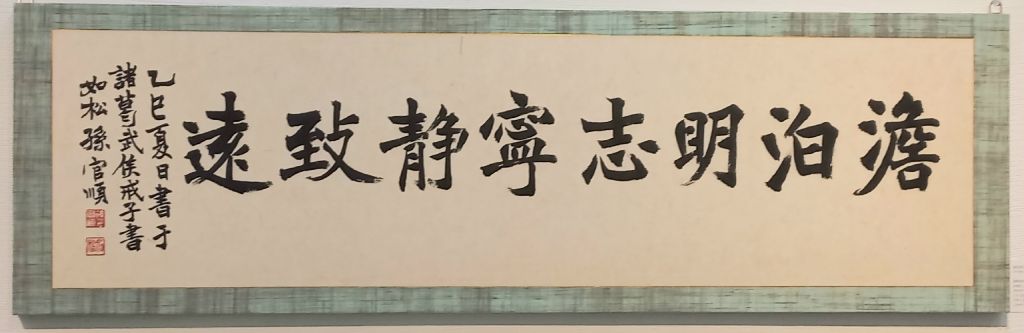 澹泊明志寧靜致遠
乙巳夏日書于
諸葛武侯戒子書
如松 孫官順